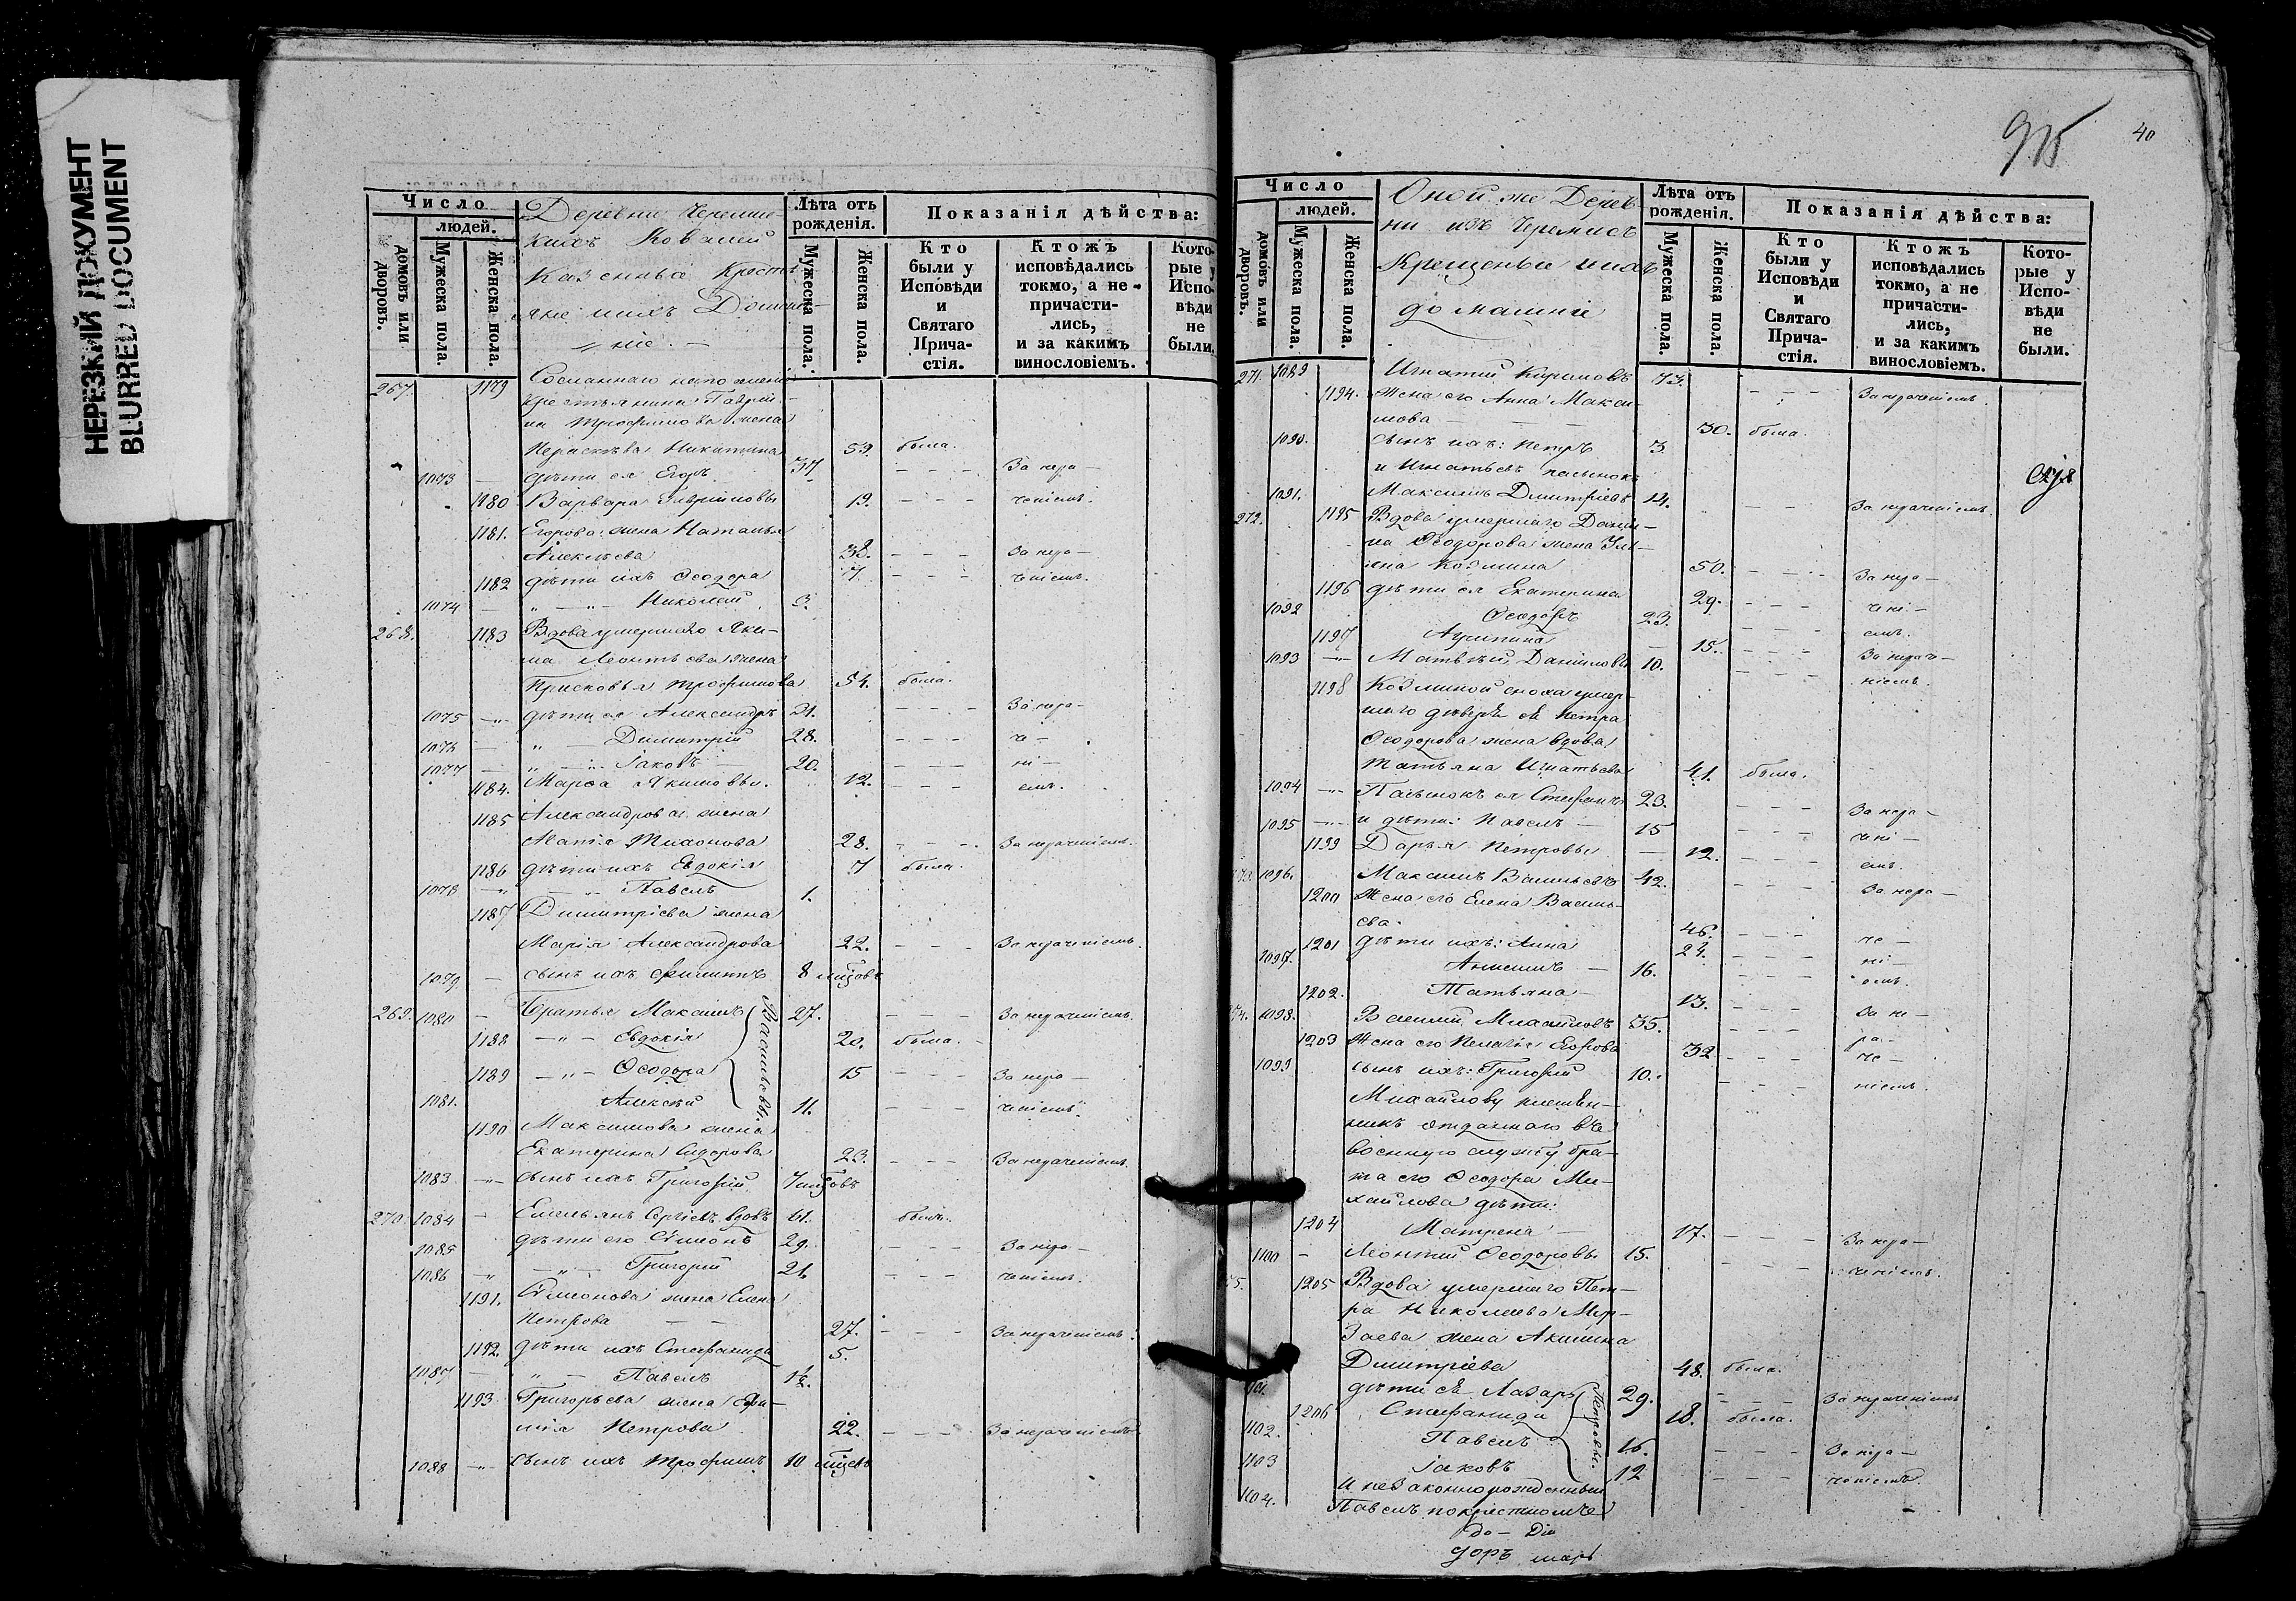 НЕРЕЗКИЙ ДОКУМЕНТ
BLURRED DOCUMENT
Число
людей.
домовъ или дворовъ.
Мужеска пола.
Женска пола.
Деревни
Казенные Крестья-
яне ихъ Домаш-
ніе
Лѣта отъ рожденія.
Мужеска пола.
Женска пола.
Показанія дѣйства:
Кто были у Исповѣди и Святаго Прича-стія.
Ктожъ исповѣдались токмо, а не-причасти-лись, и за какимъ винословіемъ.
Кото-рые у Испо-вѣди не были.
267. 1179
крестьянина Гаврии-
ла Трофимова жена
Никитина 59. была.
1073 дѣти ея Егоръ 37 За нера-
1180 Варвара Гавриловы 19. ченіемъ.
1181. Егорова жена Наталья
Алексѣева 38. За нера-
1182 дѣти ихъ Ѳеодора 7 ченіемъ.
1074 Николай 3.
268. 1183 Вдова умершаго Яки-
ма Леонтьева жена
Трофимова 54. была.
1075 дѣти ея Александръ 21. За нера-
1076 Димитрій 28. че-
1077 Іаковъ 20. ні-
1184. Марѳа Якимовы. 12. емъ.
1185 Александрова жена
Тихонова 28. За нераченіемъ.
1186 дѣти ихъ Евдокія 7 была
1078 Павелъ 1.
1187 Димитріева жена
Марія Александрова 22. За нераченіемъ.
1079 сынъ ихъ Филиппъ 8 мцовъ
269. 1080 Братья Максимъ 27. За нераченіемъ.
1188 Евдокія 20. была.
1189 Ѳеодора 15 За нера-
1081. Алексѣй 11. ченіемъ.
Васильевы.
1190 Максимова жена
Екатерина Сидорова 23. За нераченіемъ.
1083 сынъ ихъ Григорій 7 мцовъ
270. 1084 Емельянъ Сергіевъ вдовъ 61. былъ.
1085 дѣти его Симеонъ 29. За нера-
1086 Григорій 21 ченіемъ.
1191. Симеонова жена Елена
Петрова 27. За нераченіемъ.
1192. дѣти ихъ Стефанида 5.
1087 Павелъ 1½.
1193 Григорьева жена
Петрова 22. За нераченіемъ
1088 сынъ ихъ Трофимъ 10 мцовъ
915 40
Число
людей.
домовъ или дворовъ.
Мужеска пола.
Женска пола.
Оной же Дерев-
ни изъ Черемисъ
Крещеные ихъ
домашніе
Лѣта отъ рожденія.
Мужеска пола.
Женска пола.
Показанія дѣйства:
Кто были у Исповѣди и Святаго Прича-стія.
Ктожъ исповѣдались токмо, а не причасти-лись, и за какимъ винословіемъ.
Кото-рые у Испо-вѣди не были.
271. 1089 Игнатій 73. За нераченіемъ
1194. Жена его Анна Макси-
мова 30. была.
1090. сынъ ихъ: Петръ 3.
и Игнатьевъ пасынокъ
1091. Максимъ Димитріевъ 14. За нераченіемъ.
272. 1195 Вдова умершаго Дани-
ла Ѳеодорова жена Уль-
яна Козмина 50. За нера-
1196 дѣти ея Екатерина 29. чені-
1092 Ѳеодоръ 23. емъ.
1197 Агрипина 15. За нерач-
1093 Матвѣй Даниловы 10. ніемъ.
1198 Козминой сноха умер-
шаго деверя ея Петра
Ѳеодорова жена вдова
Татьяна Игнатьева 41. была.
1094 Пасынокъ ея Стефанъ 23. За нера-
1095 и дѣти: Павелъ 15 чені-
1199 Дарья Петровы 12. емъ.
1096. Максимъ Васильевъ 42. За нера-
1200 Жена его Елена Василь-
ева 46. че-
1201 дѣти ихъ: Анна 21. ні-
1097. 16. емъ.
1202. Татьяна 13. За не-
1098. Василій Михайловъ 35. ра-
1203 Жена его Пелагія Егорова 32 че-
1099 сынъ ихъ: Григорій 10. ніемъ.
Михайлову племян-
никъ отданнаго въ
военную службу бра-
та его Ѳеодора Ми-
хайлова дѣти:
1204 Матрена 17. За нера-
1100 Леонтій Ѳеодоровы 15. ченіемъ.
1205 Вдова умершаго Пет-
ра Николаева Мур-
заева жена Акилина
Димитріева 48. была.
дѣти ея Лазарь 29. За нераченіемъ
1206 Стефанида 18. была.
1102. Павелъ 16. За нера-
1103 Іаковъ 12 ченіемъ.
Петровы.
1104. И незаконнорожденный
Павелъ по крестномъ